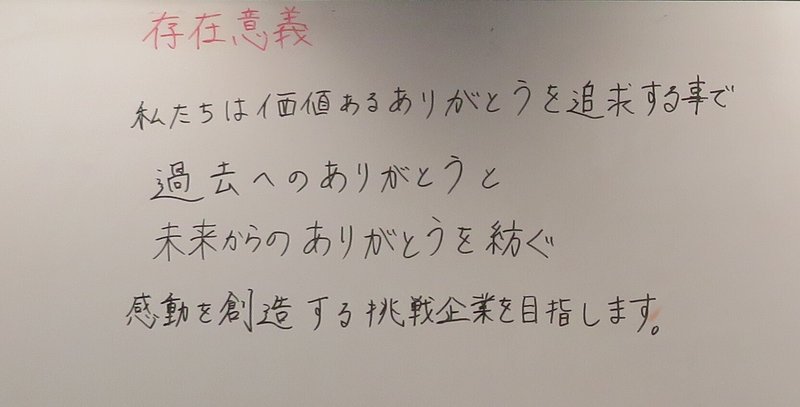 存在意義
私たちは価値あるありがとうを追求する事で
過去へのありがとうと
未来からのありがとうを紡ぐ
感動を創造する挑戦企業を目指します。